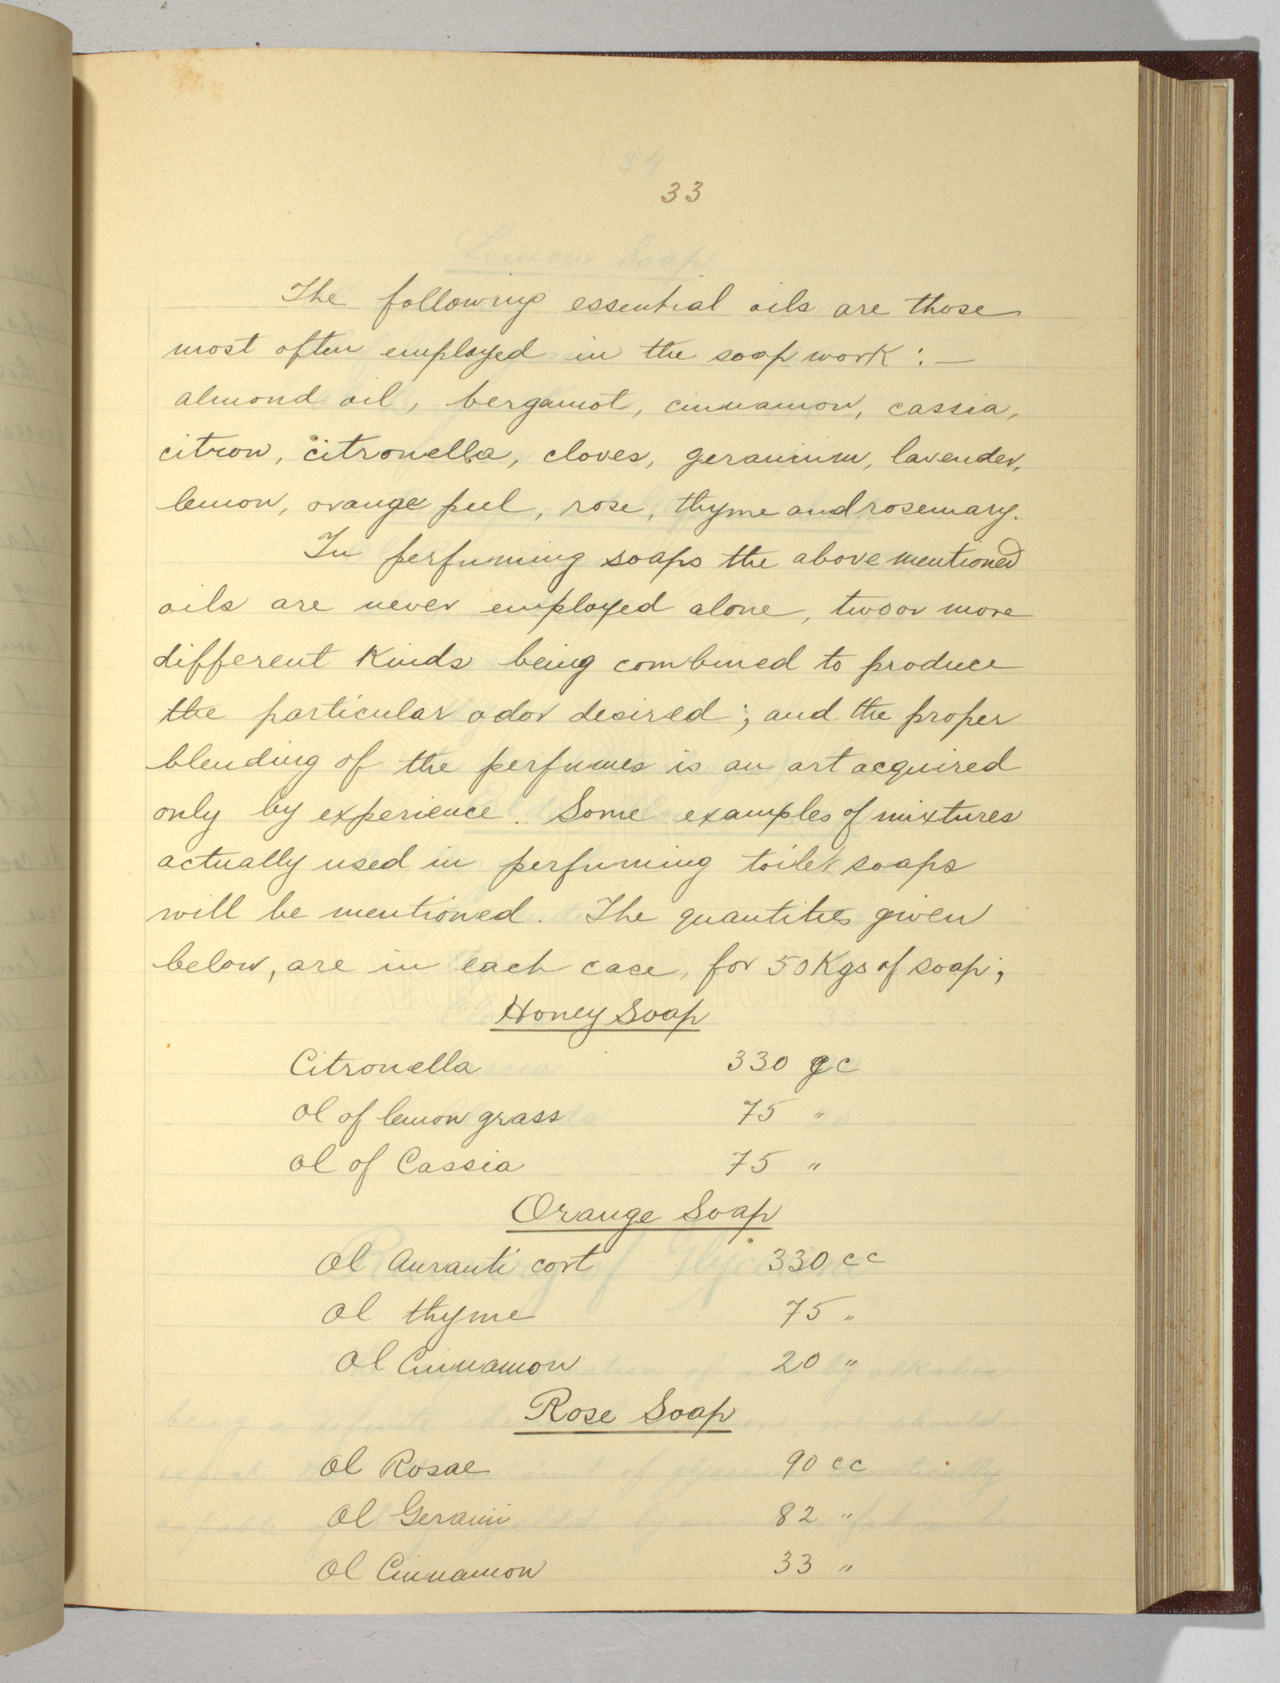 33
The following essential oils are those
most often employed in the soap work : —
almond oil, bergamot, cinnamon, cassia,
citron, citronella, cloves, geranium, lavender,
lemon, orange peel, rose, thyme and rosemary.
In perfuming soaps the above mentioned
oils are never employed alone, two or more
different kinds being combined to produce
the particular odor desired ; and the proper
blending of the perfumes is an art acquired
only by experience. Some examples of mixtures
actually used in perfuming toilet soaps
will be mentioned. The quantities given
below, are in each case, for 50 Kgs of soap ;
Honey Soap
Citronella 330 cc
Ol of lemon grass 75 "
Ol of Cassia 75 "
Orange Soap
Ol Auranti cort 330 cc
Ol thyme 75 "
Ol Cinnamon 20 "
Rose Soap
Ol Rosae 90 cc
Ol Geranii 82 "
Ol Cinnamon 33 "